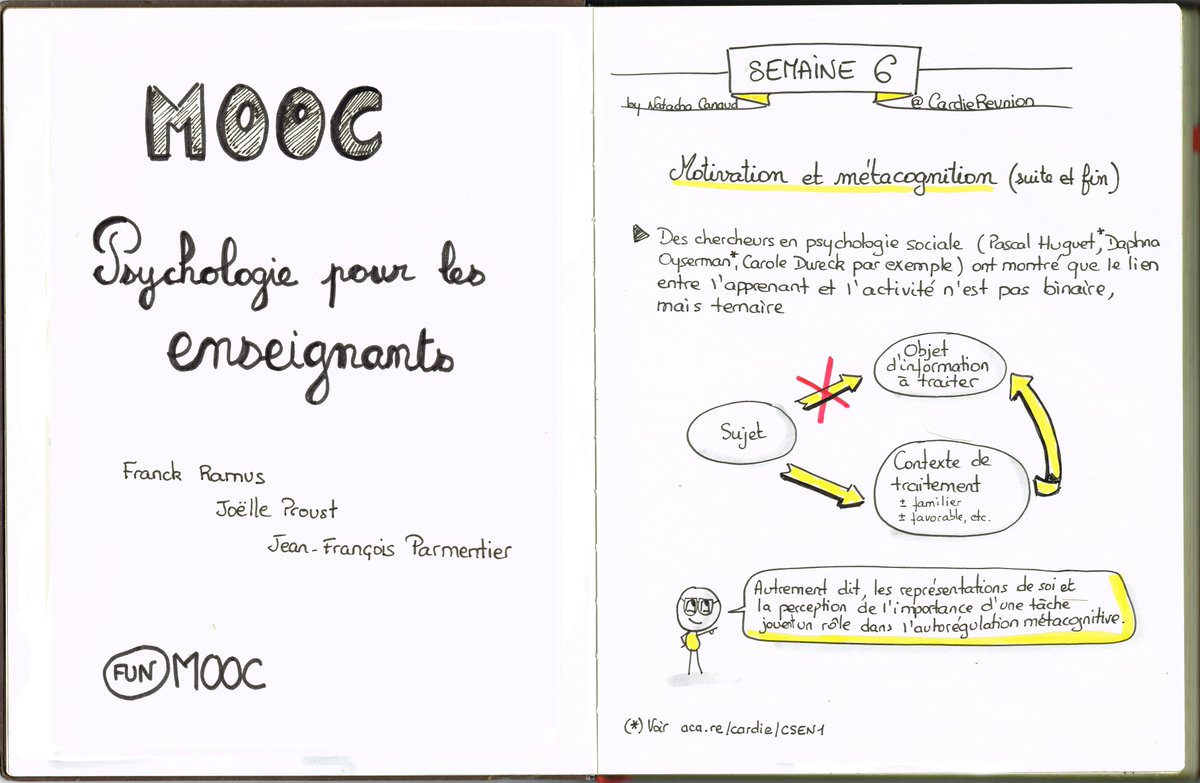 MOOC
Psychologie pour les
enseignants
Franck Ramus
Joëlle Proust
Jean-François Parmentier
FUN MOOC
SEMAINE 6
by Natacha Canaud
@CardieReunion
Motivation et métacognition (suite et fin)
Des chercheurs en psychologie sociale (Pascal Huguet*, Daphna
Oyserman*, Carole Dweck par exemple) ont montré que le lien
entre l'apprenant et l'activité n'est pas binaire,
mais ternaire
Objet
d'information
à traiter
Sujet
Contexte de
traitement
± familier
± favorable, etc.
Autrement dit, les représentations de soi et
la perception de l'importance d'une tâche
jouent un rôle dans l'autorégulation métacognitive.
(*) Voir aca.re/cardie/CSEN1